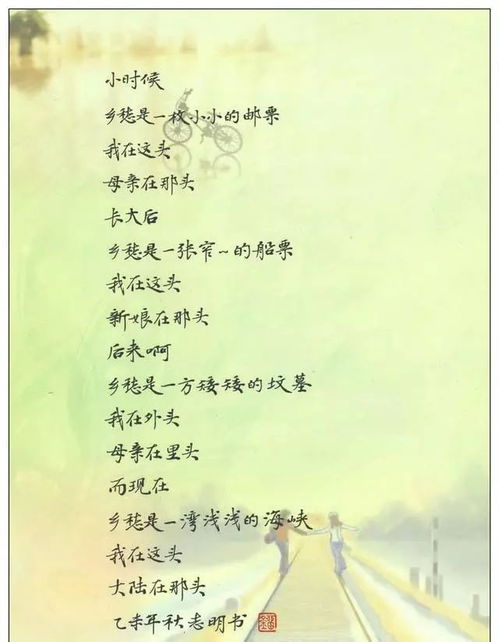 小时候
乡愁是一枚小小的邮票
我在这头
母亲在那头
长大后
乡愁是一张窄~的船票
我在这头
新娘在那头
后来啊
乡愁是一方矮矮的坟墓
我在外头
母亲在里头
而现在
乡愁是一湾浅浅的海峡
我在这头
大陆在那头
乙未年秋志明书